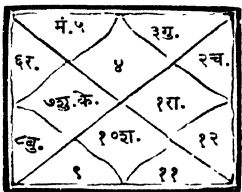 मं.५ ३गु.
६र. ४ २च.
७शु.के. १रा.
८बु. १०श. १२
९ ११